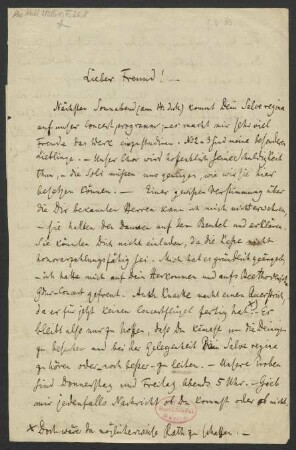 Lieber Freund! —
Nächsten Sonnabend (am 14. dss) kommt Dein Salve regina
auf unser Concertprogramm; — er macht mir sehr viel
Freude das Werk einzustudiren. No 2 – 3 sind meine besonderen
Lieblinge. — Unser Chor wird hoffentlich seine Schuldigkeit
thun, — die Soli müssen uns genügen, wie wir sie hier
besetzen können. — Einer gewissen Verstimmung über
die Dir bekannten Herren kann ich mich nicht erwehren,
— sie halten den Daumen auf dem Beutel und erklären,
Sie könnten Dich nicht einladen, da die Kasse nicht
honorarzahlungsfähig sei. Mich hat es gründlich geärgert,
— ich hatte mich auf Dein Herkommen und aufs Beethoven'sche
Gdur-Concert gefreut. Auch Knake macht einen
da er für jetzt keinen Concertflügel fertig hat. Es
bleibt also nur zu hoffen, dass Du kämest um die
zu besuchen und bei der Gelegenheit Dein Salve regina
zu hören oder noch besser — zu leiten. — Unsere Proben
sind Donnerstag und Freitag Abends 5 Uhr. — Gieb
mir jedenfalls Nachricht ob Du kommst oder ob nicht.
× Doch wäre da möglicherweise Rath zu schaffen. —